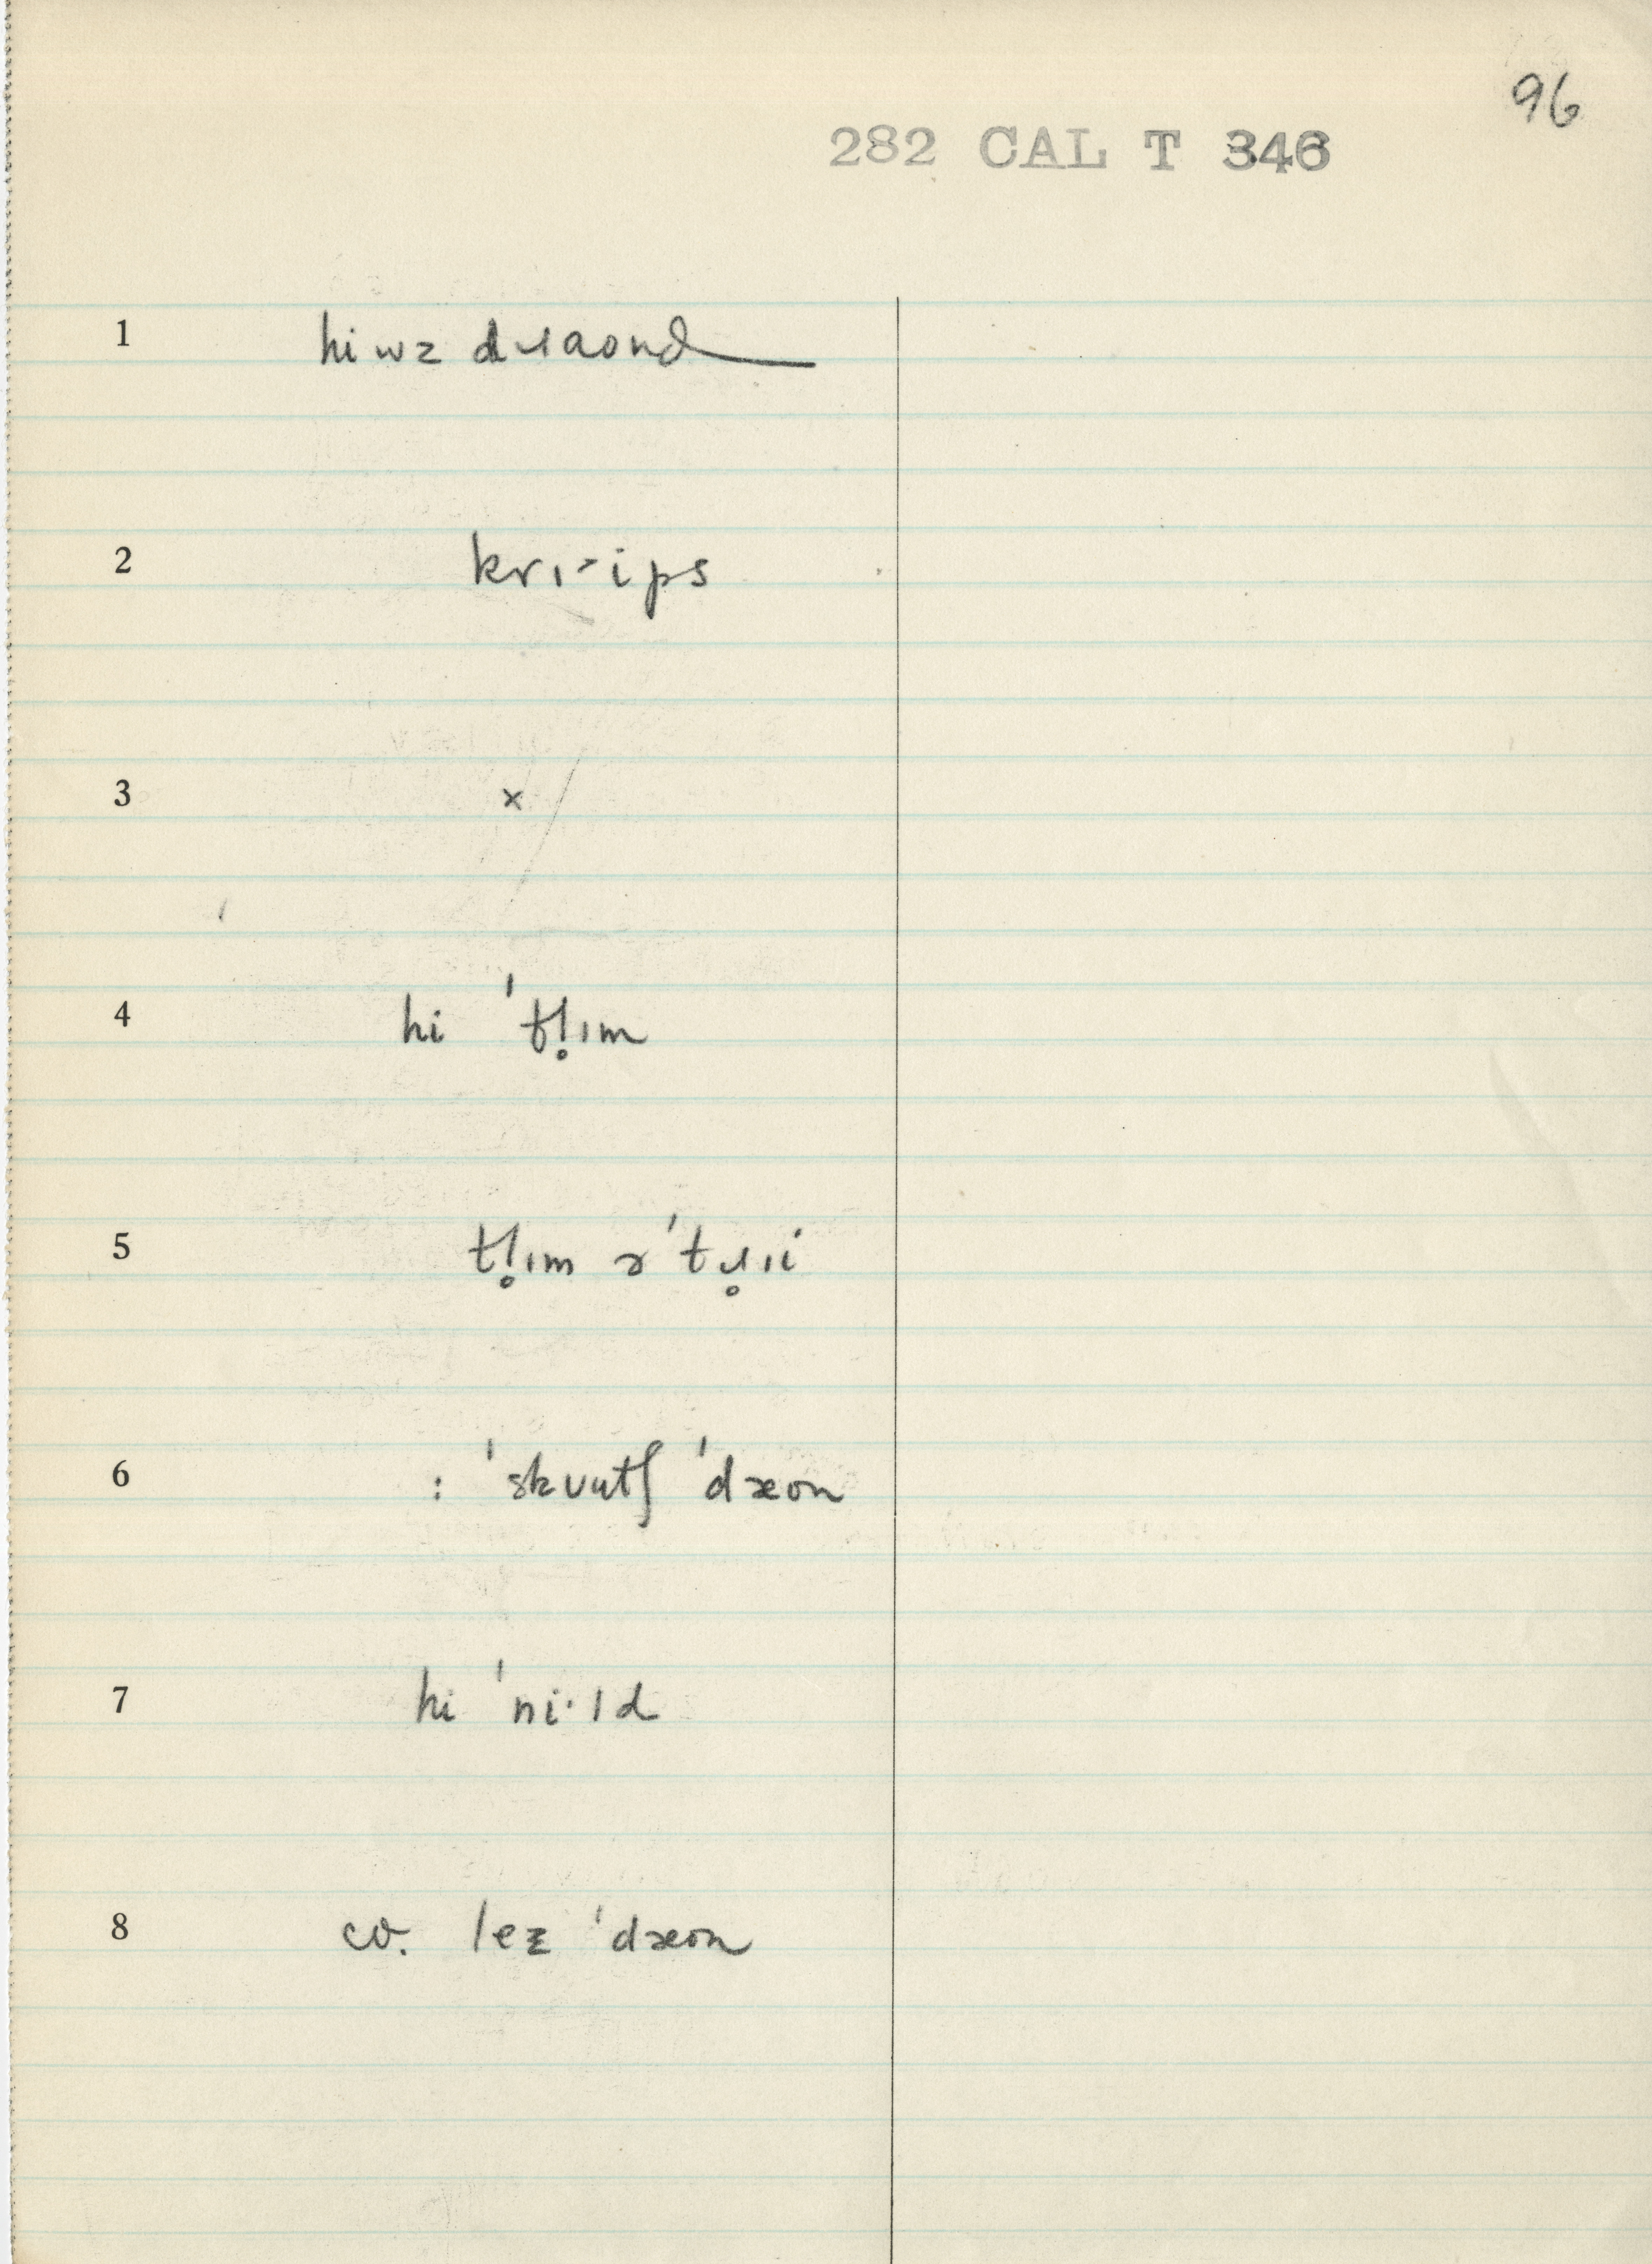 96
282 CAL T 346
1 hi wz dɹaond
2 krɪ-ips
3 x
4 hi 'tl̥ɪm
5 tl̥ɪm ə'tɹ̥ɪi
6 : 'skvutʃ 'dæon
7 hi 'ni·ld
8 cv. lez 'dæon